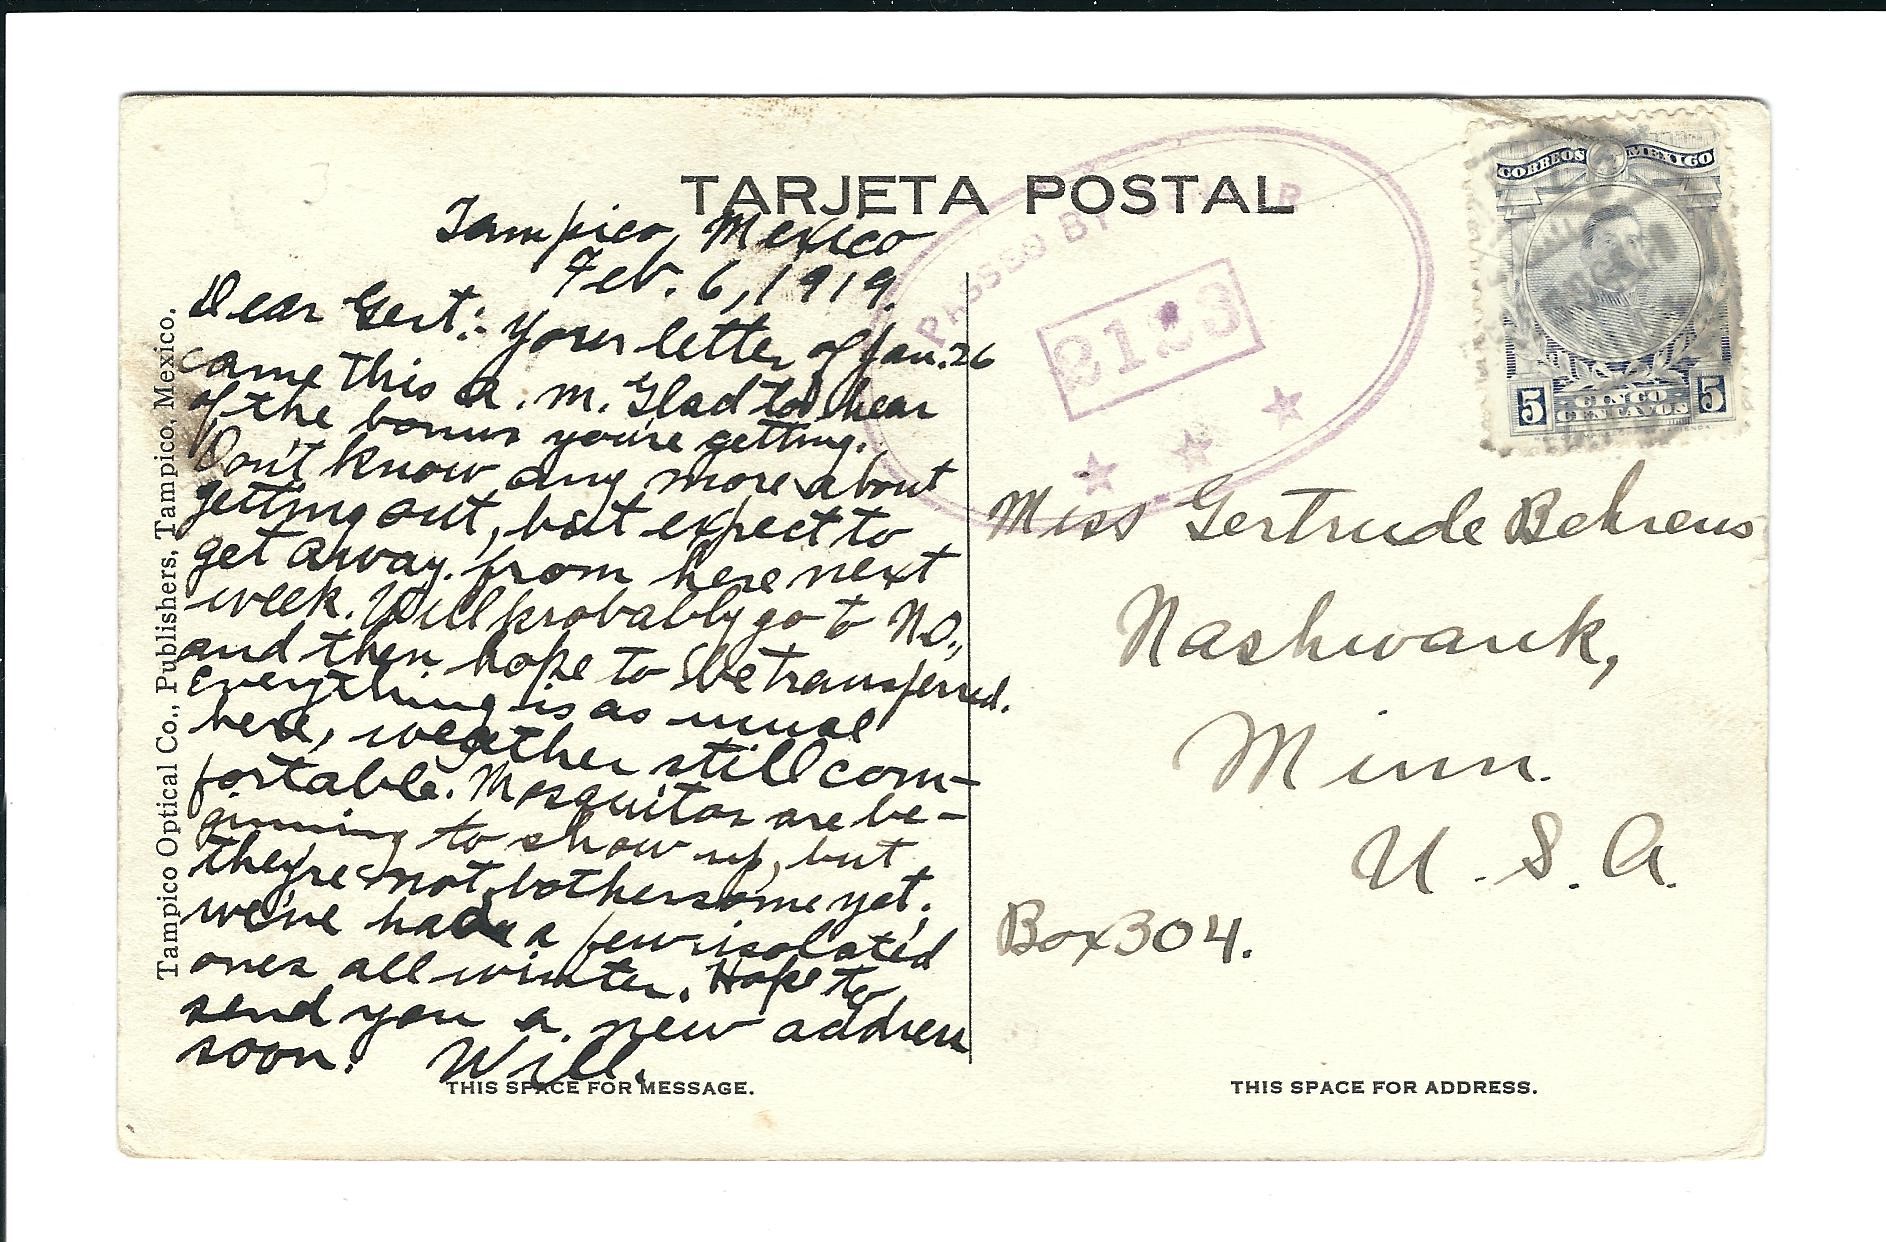 TARJETA POSTAL
Tampico, Mexico
Feb. 6, 1919.
Dear Gert: Your letter of Jan. 26
came this A. M. Glad to hear
of the bonus you're getting.
Don't know any more about
getting out, but expect to
get away from here next
week. Will probably go to N.O.,
and then hope to be transferred.
Everything is as usual
here, weather still com-
fortable. Mosquitos are be-
ginning to show up, but
they're not bothersome yet.
We've had a few isolated
ones all winter. Hope to
send you a new address
soon. Will.
THIS SPACE FOR MESSAGE.
Tampico Optical Co., Publishers, Tampico, Mexico.
PASSED BY
2123
CORREOS MEXICO
5 CINCO CENTAVOS 5
Miss Gertrude Behrens
Nashwauk,
Minn.
U. S. A.
Box 304.
THIS SPACE FOR ADDRESS.